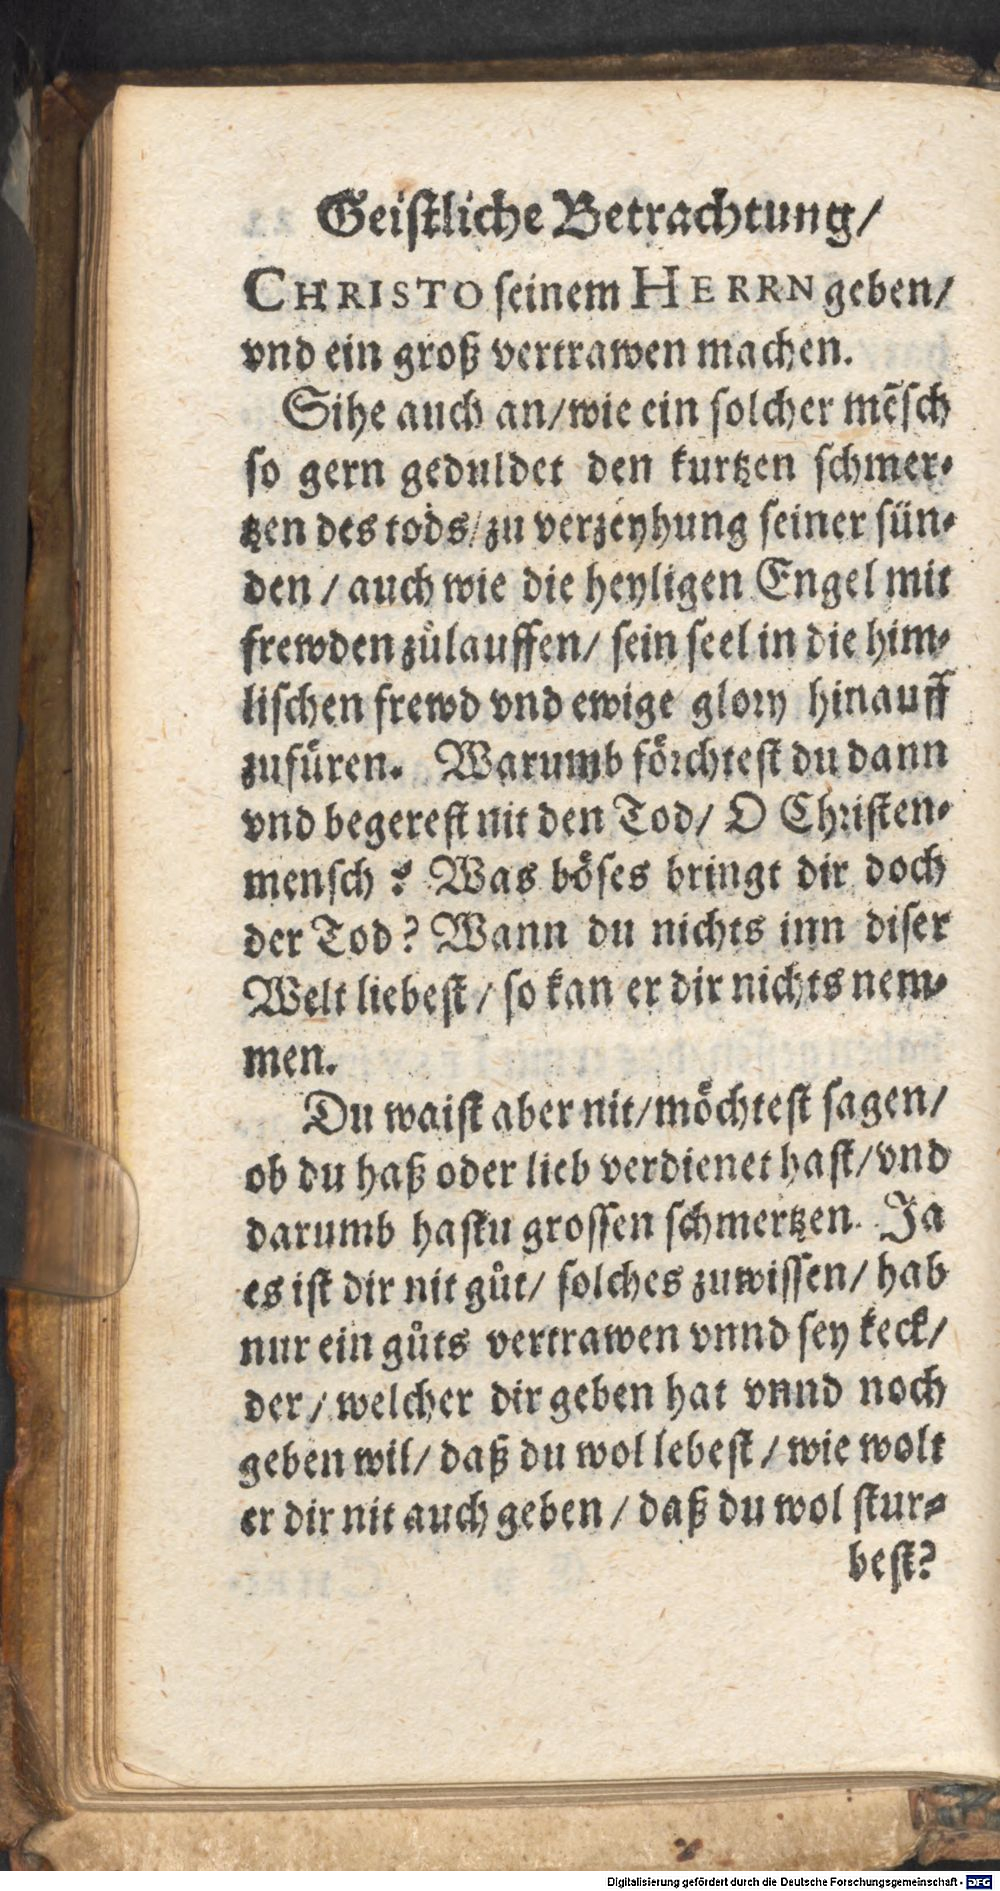 Geistliche Betrachtung/
CHRISTO seinem HERRN geben/
vnd ein groß vertrawen machen.
Sihe auch an/wie ein solcher mẽsch
so gern geduldet den kurtzen schmer-
tzen des tods/zu verzeyhung seiner sün-
den / auch wie die heyligen Engel mit
frewden zůlauffen/ sein seel in die him-
lischen frewd vnd ewige glory hinauff
zufüren. Warumb förchtest du dann
vnd begerest nit den Tod/ O Christen-
mensch? Was böses bringt dir doch
der Tod? Wann du nichts inn diser
Welt liebest / so kan er dir nichts nem-
men.
Du waist aber nit/möchtest sagen/
ob du haß oder lieb verdienet hast/vnd
darumb hastu grossen schmertzen. Ja
es ist dir nit gůt/ solches zuwissen/ hab
nur ein gůts vertrawen vnnd sey keck/
der / welcher dir geben hat vnnd noch
geben wil/ daß du wol lebest / wie wolt
er dir nit auch geben / daß du wol stur-
best?
Digitalisierung gefördert durch die Deutsche Forschungsgemeinschaft - DFG